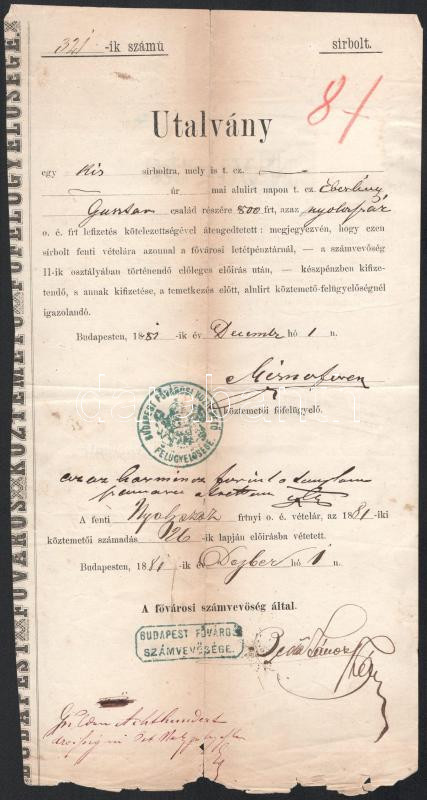 321 -ik számú sirbolt.
81
Utalvány
egy kis sirboltra, mely is t. cz.
úr mai alulirt napon t. cz. Eberling
Gusztav család részére 800 frt, azaz nyolcszáz
o. é. frt lefizetés kötelezettségével átengedtetett: megjegyezvén, hogy ezen
sirbolt fenti vételára azonnal a fővárosi letétpénztárnál, — a számvevőség
II-ik osztályában történendő előleges előirás után, — készpénzben kifize-
tendő, s annak kifizetése, a temetkezés előtt, alulirt köztemető-felügyelőségnél
igazolandó.
Budapesten, 1881 -ik év Decembr hó 1 n.
köztemetői főfelügyelő.
BUDAPEST FŐVÁROSI KÖZTEMETŐ
FELÜGYELŐSÉGE.
azaz harmincz forint
A fenti Nyolczszáz frtnyi o. é. vételár, az 1881-iki
köztemetői számadás 26 -ik lapján előirásba vétetett.
Budapesten, 1881 -ik év Dezber hó 1 n.
A fővárosi számvevőség által.
BUDAPEST FŐVÁROS
SZÁMVEVŐSÉGE.
Gulden Achthundert
BUDAPEST FŐVÁROS KÖZTEMETŐ FŐFELÜGYELŐSÉGE.